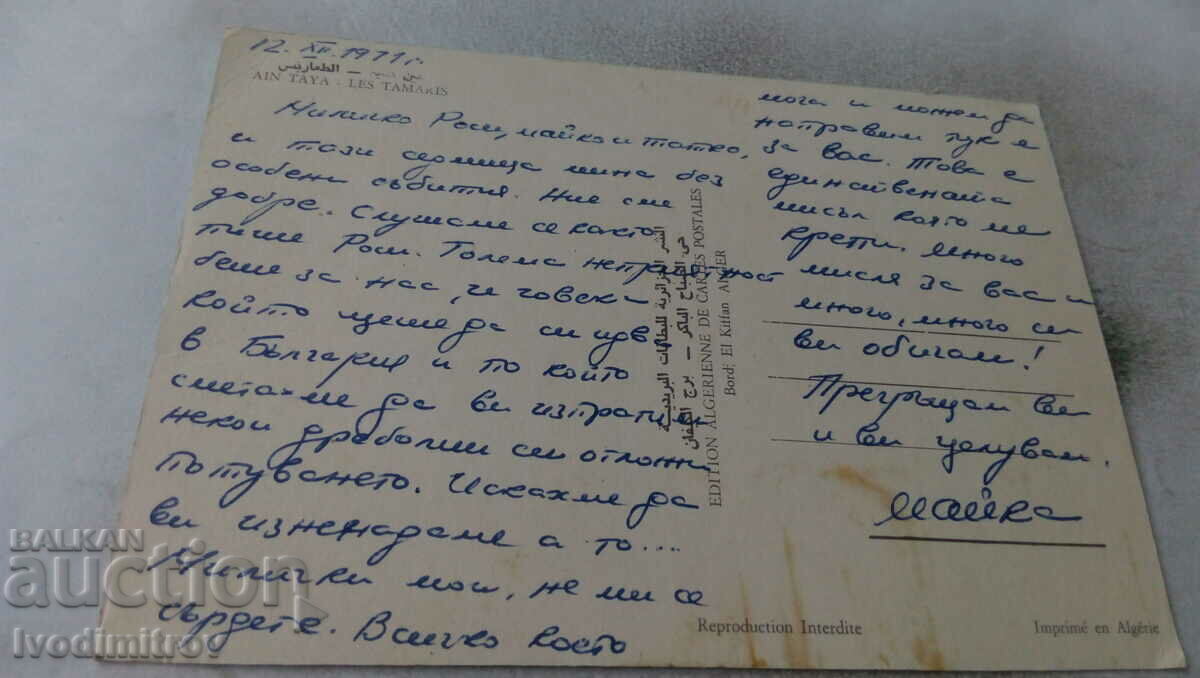 12. XII. 1971 г.
الطماريس
AIN TAYA - LES TAMARIS
Миличко Роси, майко и татко,
и тази седмица мина без
особени събития. Ние сме
добре. Слушаме се както
пише Роси. Голяма неприятност
беше за нас, че човека
който щеше да си идва
в България и по който
сметахме да ви изпратим
некои дреболии си отложи
потуването. Искахме да
ви изненадаме а то...
Милички мои, не ми се
сърдете. Всичко което
мога и можем да
направим тук е
за вас. Това е
единствената
мисъл която ме
крепи. Много
мисля за вас и
много, много си
ви обичам!
Прегръщам ви
и ви целувам.
Майка
النشر الجزائرية للبطاقات البريدية
حي الصباح الباكر - برج الكيفان
EDITION ALGERIENNE DE CARTES POSTALES
Bordj El Kiffan ALGER
Reproduction Interdite
Imprimé en Algérie
BALKAN
auction
Ivodimitrov